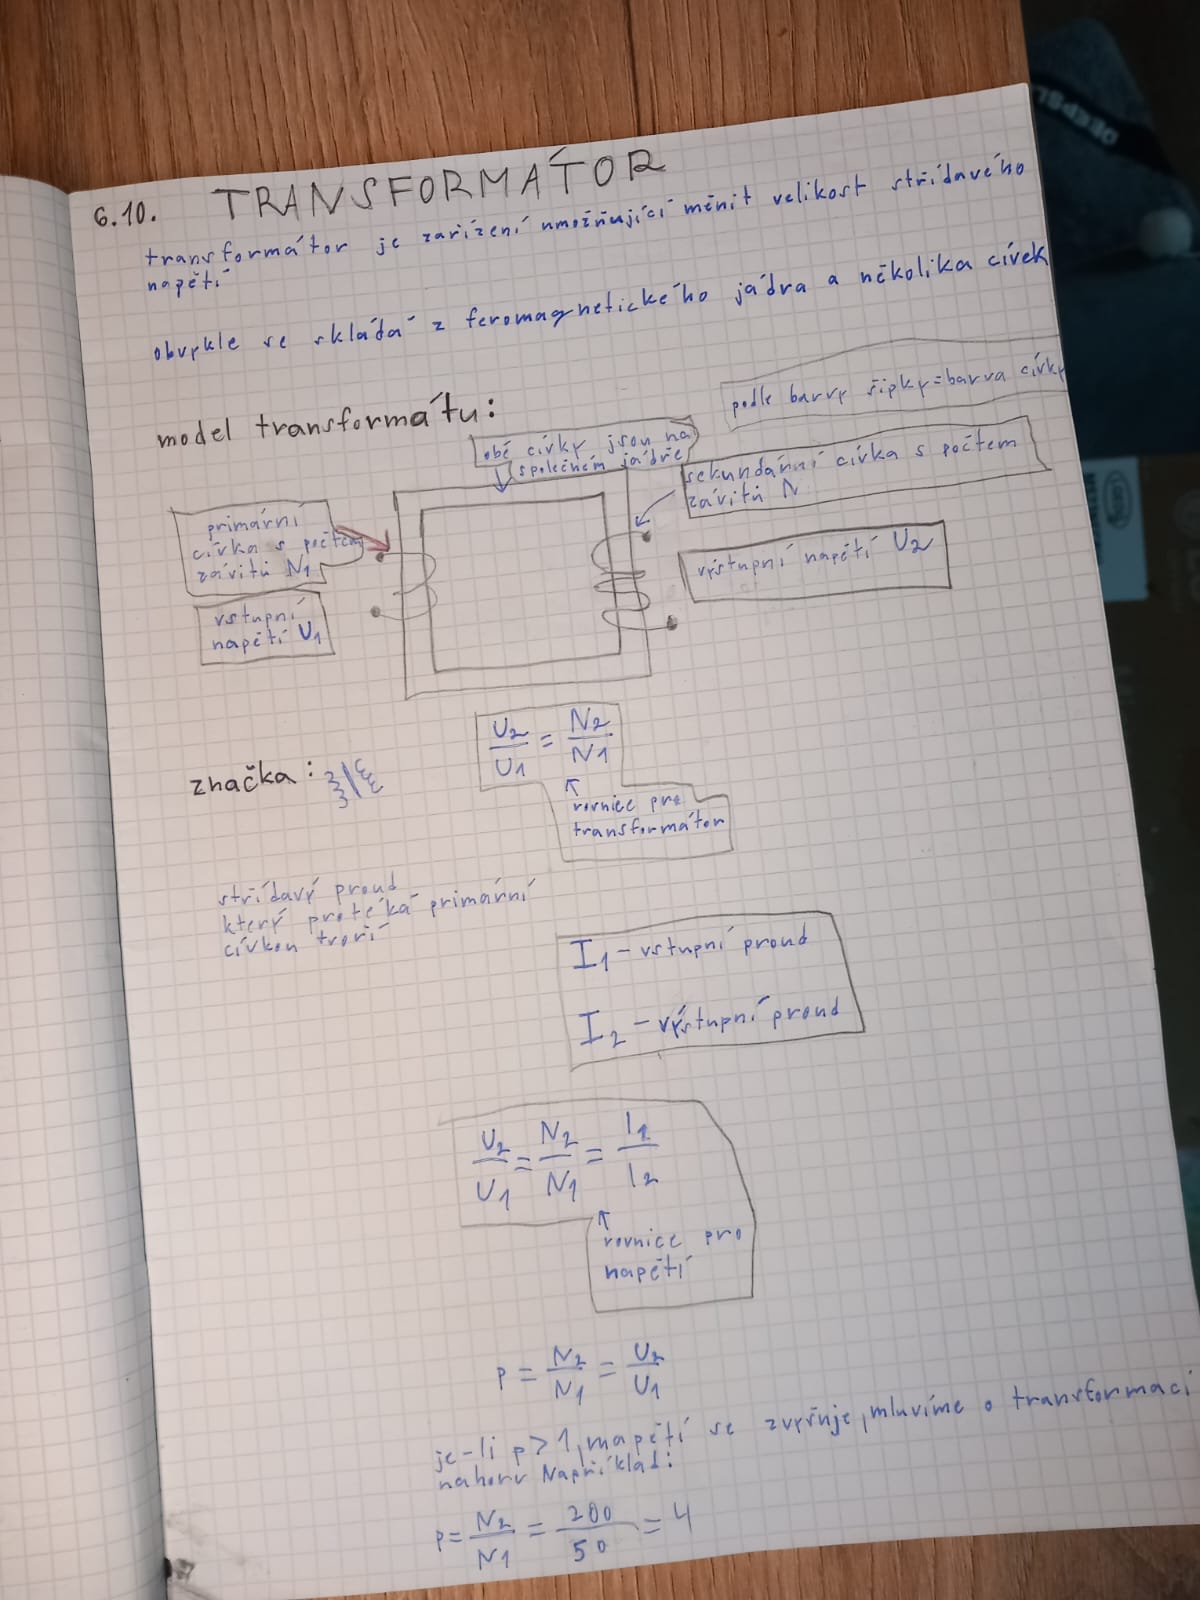 6.10. TRANSFORMÁTOR
transformátor je zařízení umožňující měnit velikost střídavého
napětí
obvykle se skládá z feromagnetického jádra a několika cívek
model transformátu:
podle barvy šipky=barva cívky
obě cívky jsou na
společném jádře
sekundární cívka s počtem
závitů N
primární
cívka s počtem
závitů N1
výstupní napětí U2
vstupní
napětí U1
U2/U1 = N2/N1
rovnice pro
transformátor
značka:
střídavý proud
který protéká primární
cívkou tvoří
I1 – vstupní proud
I2 – výstupní proud
U2/U1 = N2/N1 = I1/I2
rovnice pro
napětí
p = N2/N1 = U2/U1
je-li p > 1, napětí se zvyšuje, mluvíme o transformaci
nahoru Například:
p = N2/N1 = 200/50 = 4